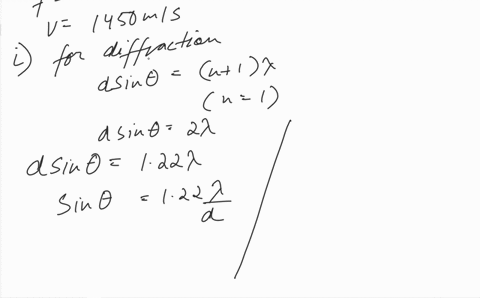 v = 1450 m/s
i) for diffraction
d sin θ = (n+1) λ
(n = 1)
d sin θ = 2λ
d sin θ = 1.22 λ
sin θ = 1.22 λ/d